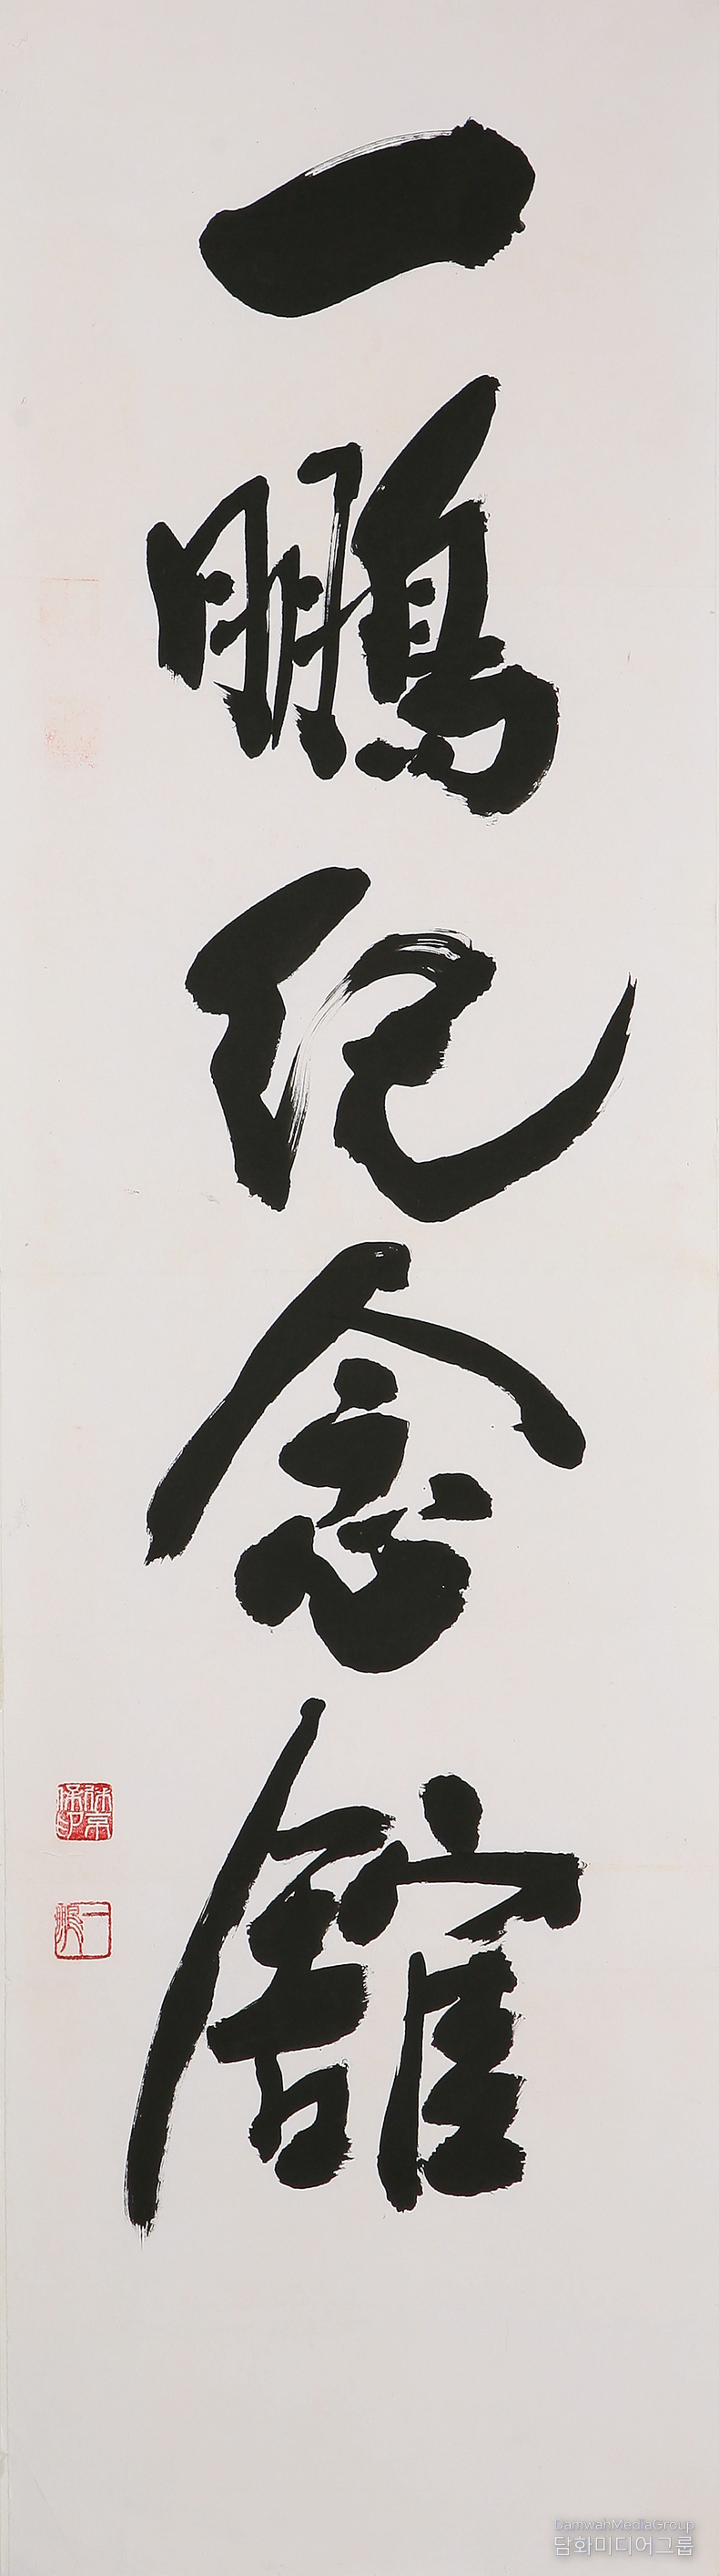 一鵬紀念舘
一鵬
DamwahMediaGroup
담화미디어그룹